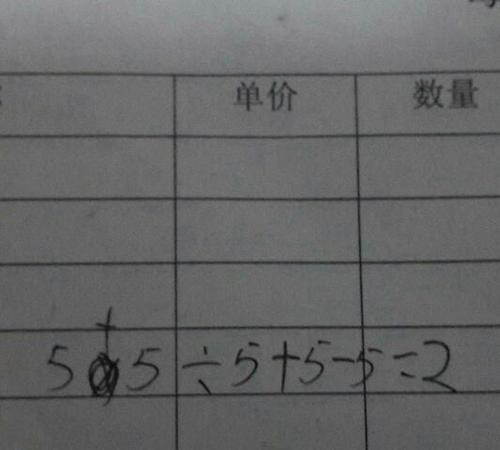 单价 数量
5+5÷5+5-5=2